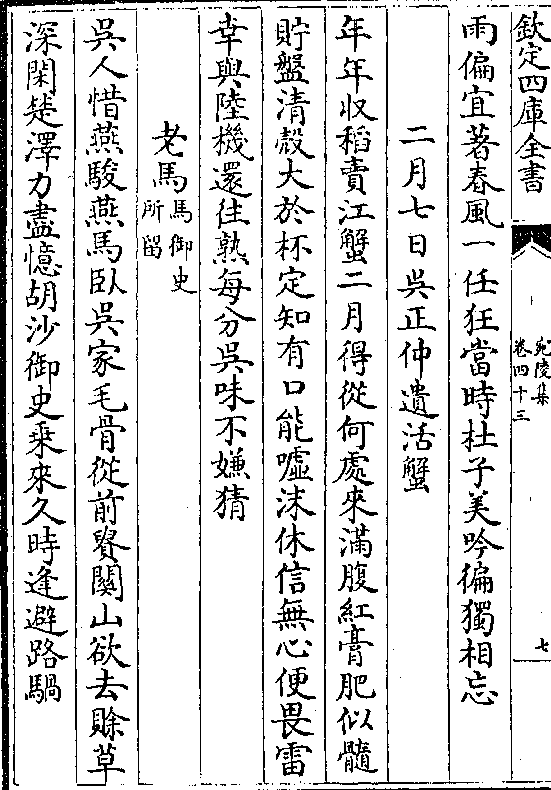 欽定四庫全書
宛陵集
卷四十三
七
雨偏宜著春風一任狂當時杜子美吟徧獨相忘
二月七日吳正仲遺活蟹
年年収稻賣江蟹二月得從何處來滿腹紅膏肥似髓
貯盤清殼大於杯定知有口能噓沫休信無心便畏雷
幸與陸機還往熟每分吳味不嫌猜
老馬馬御史所留
吳人惜燕駿燕馬臥吳家毛骨從前賢關山欲去賒草
深閑楚澤力盡憶胡沙御史乗來久時逢避路騧